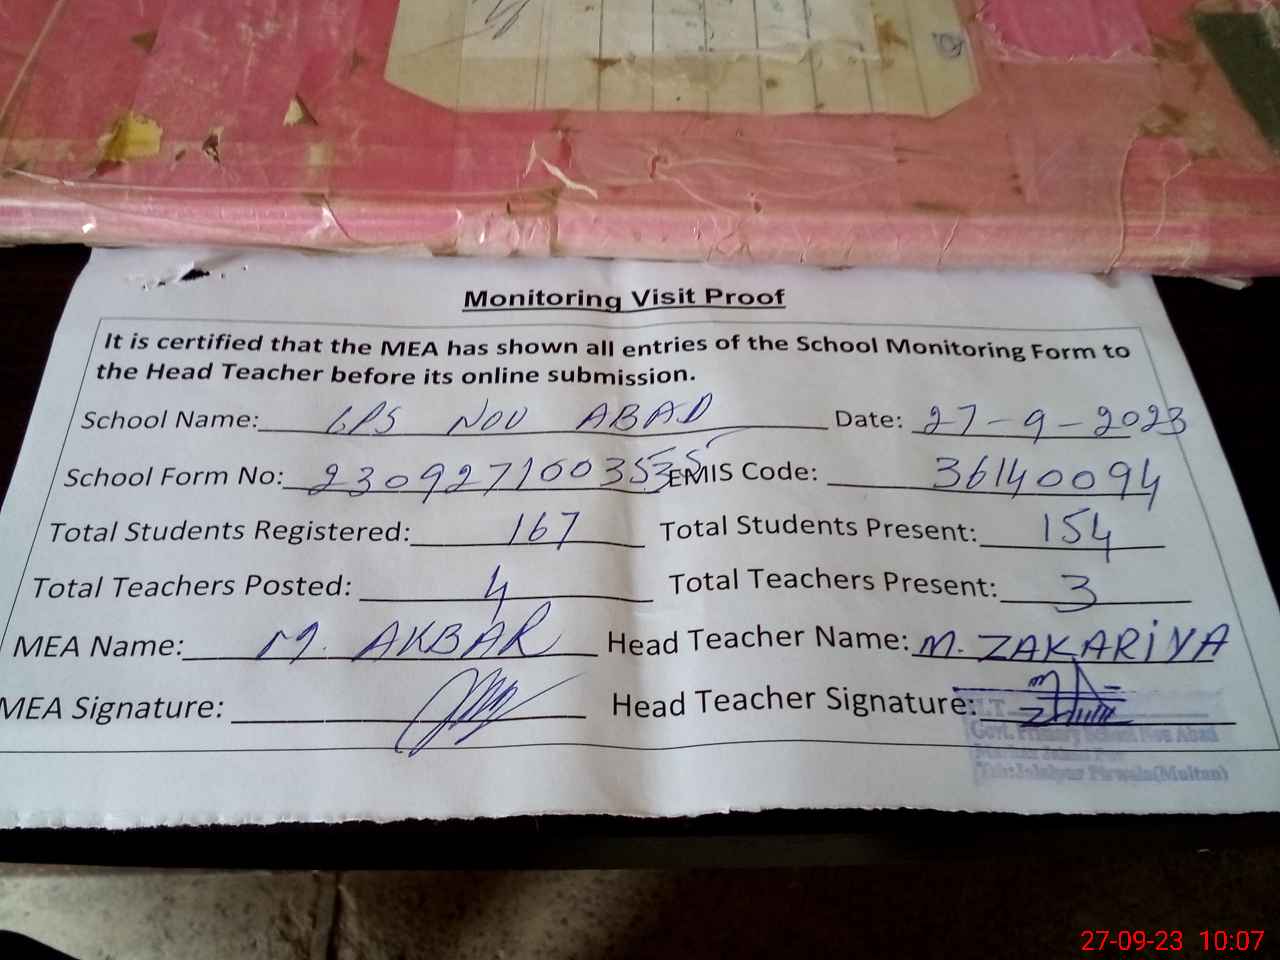 Monitoring Visit Proof
It is certified that the MEA has shown all entries of the School Monitoring Form to
the Head Teacher before its online submission.
School Name: GPS NOU ABAD Date: 27-9-2023
School Form No: EMIS Code: 36140094
Total Students Registered: 167 Total Students Present: 154
Total Teachers Posted: 4 Total Teachers Present: 3
MEA Name: M. AKBAR Head Teacher Name: M. ZAKARIYA
MEA Signature: Head Teacher Signature:
H.T
Govt. Primary School Nou Abad
Jalalpur Pirwala(Multan)
27-09-23 10:07